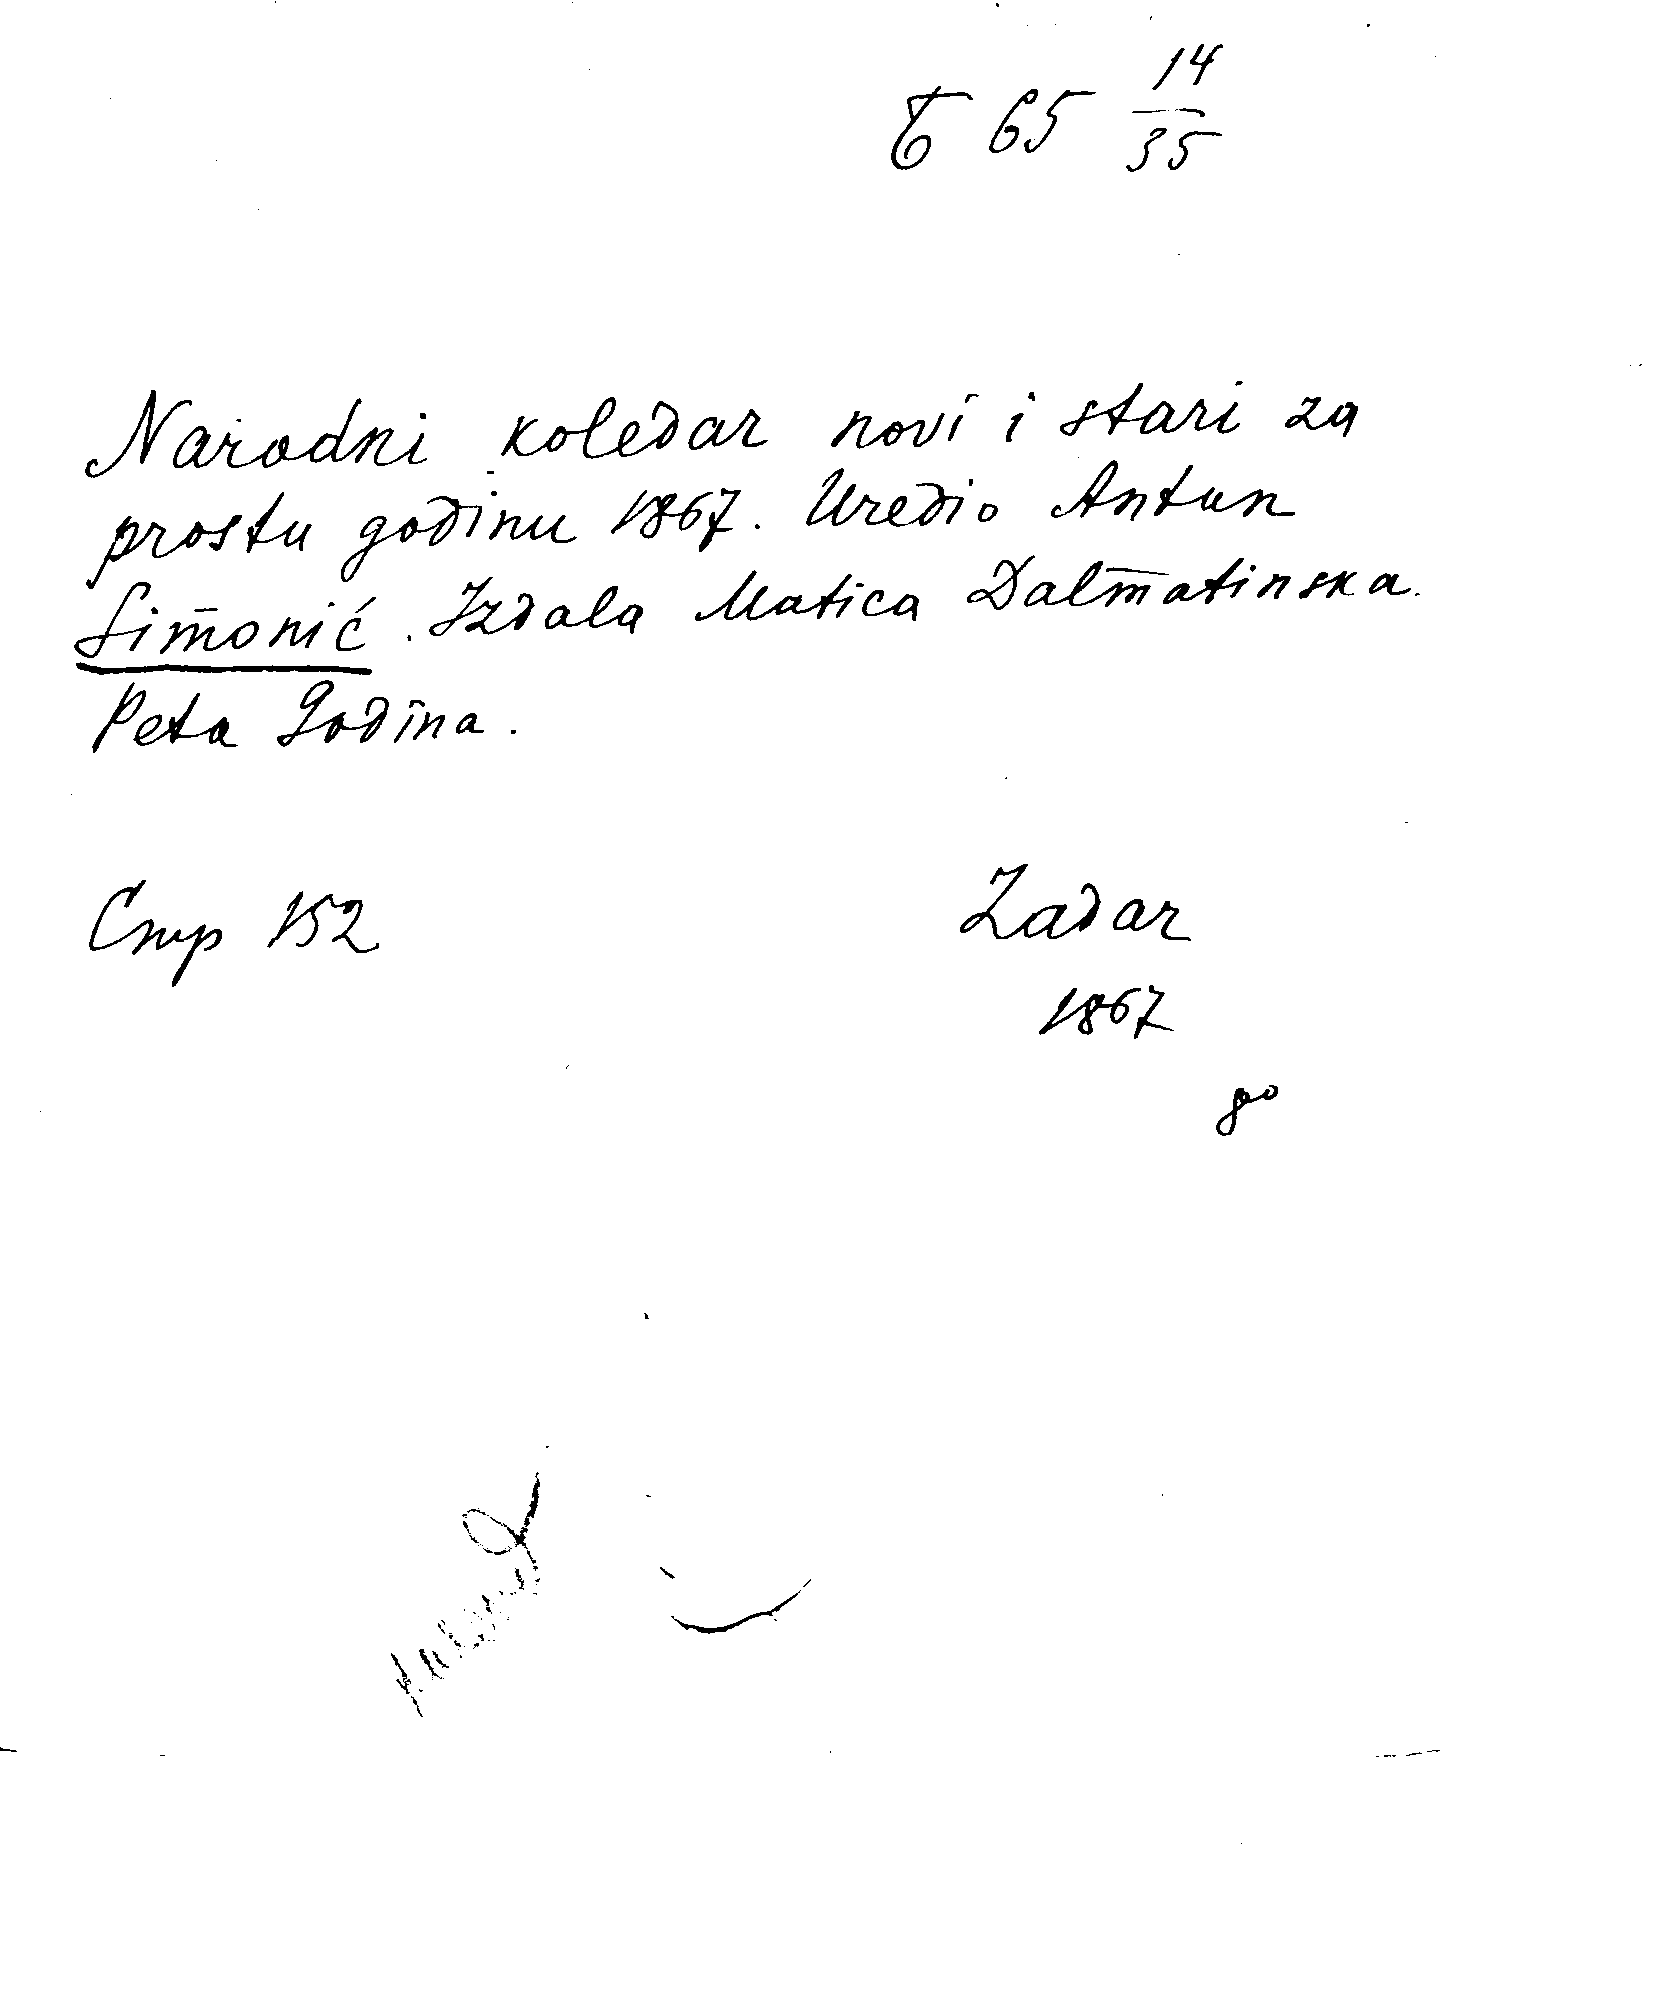 Б 65 14/35
Narodni koledar novi i stari za
prostu godinu 1867. Uredio Antun
Simonić. Izdala Matica Dalmatinska.
Peta Godina.
Стр 152
Zadar
1867